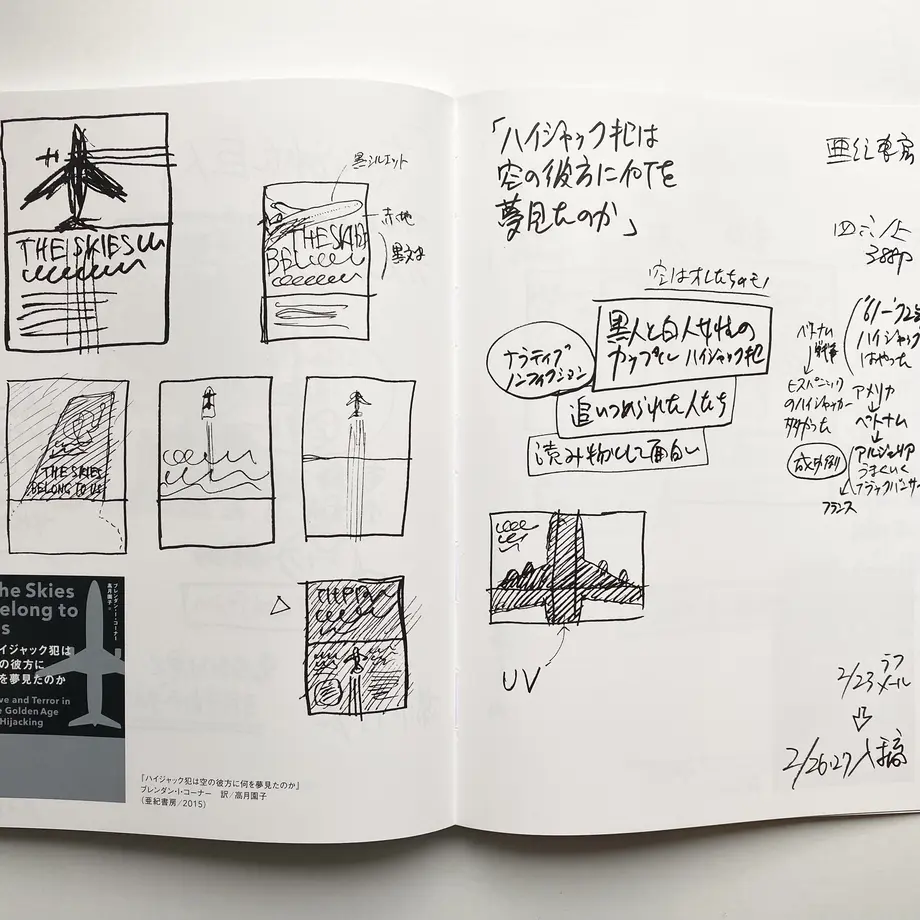 THE SKIES
黒シルエット
赤地
黒文字
THE SKIES
BE
THE SKIES
BELONG TO US
THE
he Skies
elong to
s
イジャック犯は
の彼方に
を夢見たのか
ve and Terror in
e Golden Age
Hijacking
ブレンダン・I・コーナー
高月園子 訳
『ハイジャック犯は空の彼方に何を夢見たのか』
ブレンダン・I・コーナー 訳/高月園子
(亜紀書房/2015)
「ハイジャック犯は
空の彼方に何を
夢見たのか」
亜紀書房
四六/上
388P
空はオレたちのモノ
黒人と白人女性の
カップル ハイジャック犯
ナラティブ
ノンフィクション
追いつめられた人たち
読み物として面白い
ベトナム
戦争
ヒスパニック
のハイジャッカー
多かった
成功例
フランス
'61-'72
ハイジャック
はやった
アメリカ
ベトナム
アルジェリア
うまくいく
ブラックパンサー
UV
2/23 ラフ
メール
2/26・27 入稿